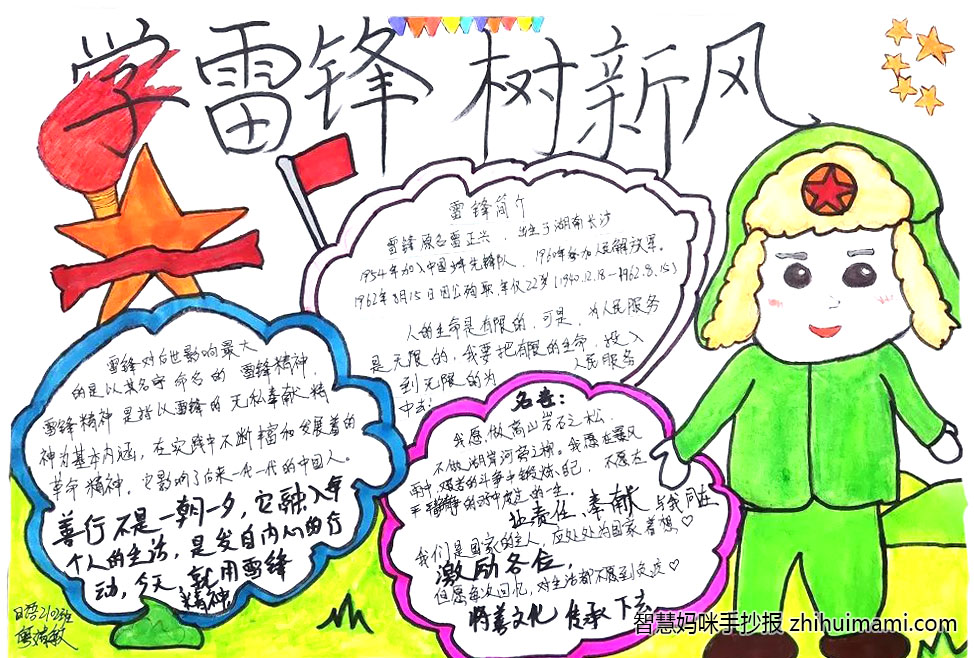 学雷锋 树新风
雷锋简介
雷锋原名雷正兴，出生于湖南长沙
1954年加入中国少年先锋队，1960年参加人民解放军。
1962年8月15日因公殉职，年仅22岁(1940.12.18-1962.8.15)
人的生命是有限的，可是，为人民服务
是无限的，我要把有限的生命，投入
到无限的为 人民服务
中去！
雷锋对后世影响最大
的是以其名字命名的雷锋精神，
雷锋精神是指以雷锋的无私奉献精
神为基本内涵，在实践中不断丰富和发展着的
革命精神，它影响了后来一代一代的中国人。
善行不是一朝一夕，它融入每
个人的生活，是发自内心的行
动，今天，就用雷锋
精神
名言：
我愿做高山岩石之松，
不做湖岸河旁之柳。我愿在暴风
雨中 的斗争中锻炼自己，不愿在
平静的 的一生。
让责任、奉献与我同在
我们是国家的主人，应处处为国家着想♡
激励各位，
但愿每次回忆，对生活都不感到负疚♡
将善文化 传承下去
日语2102班
智慧妈咪手抄报 zhihuimami.com